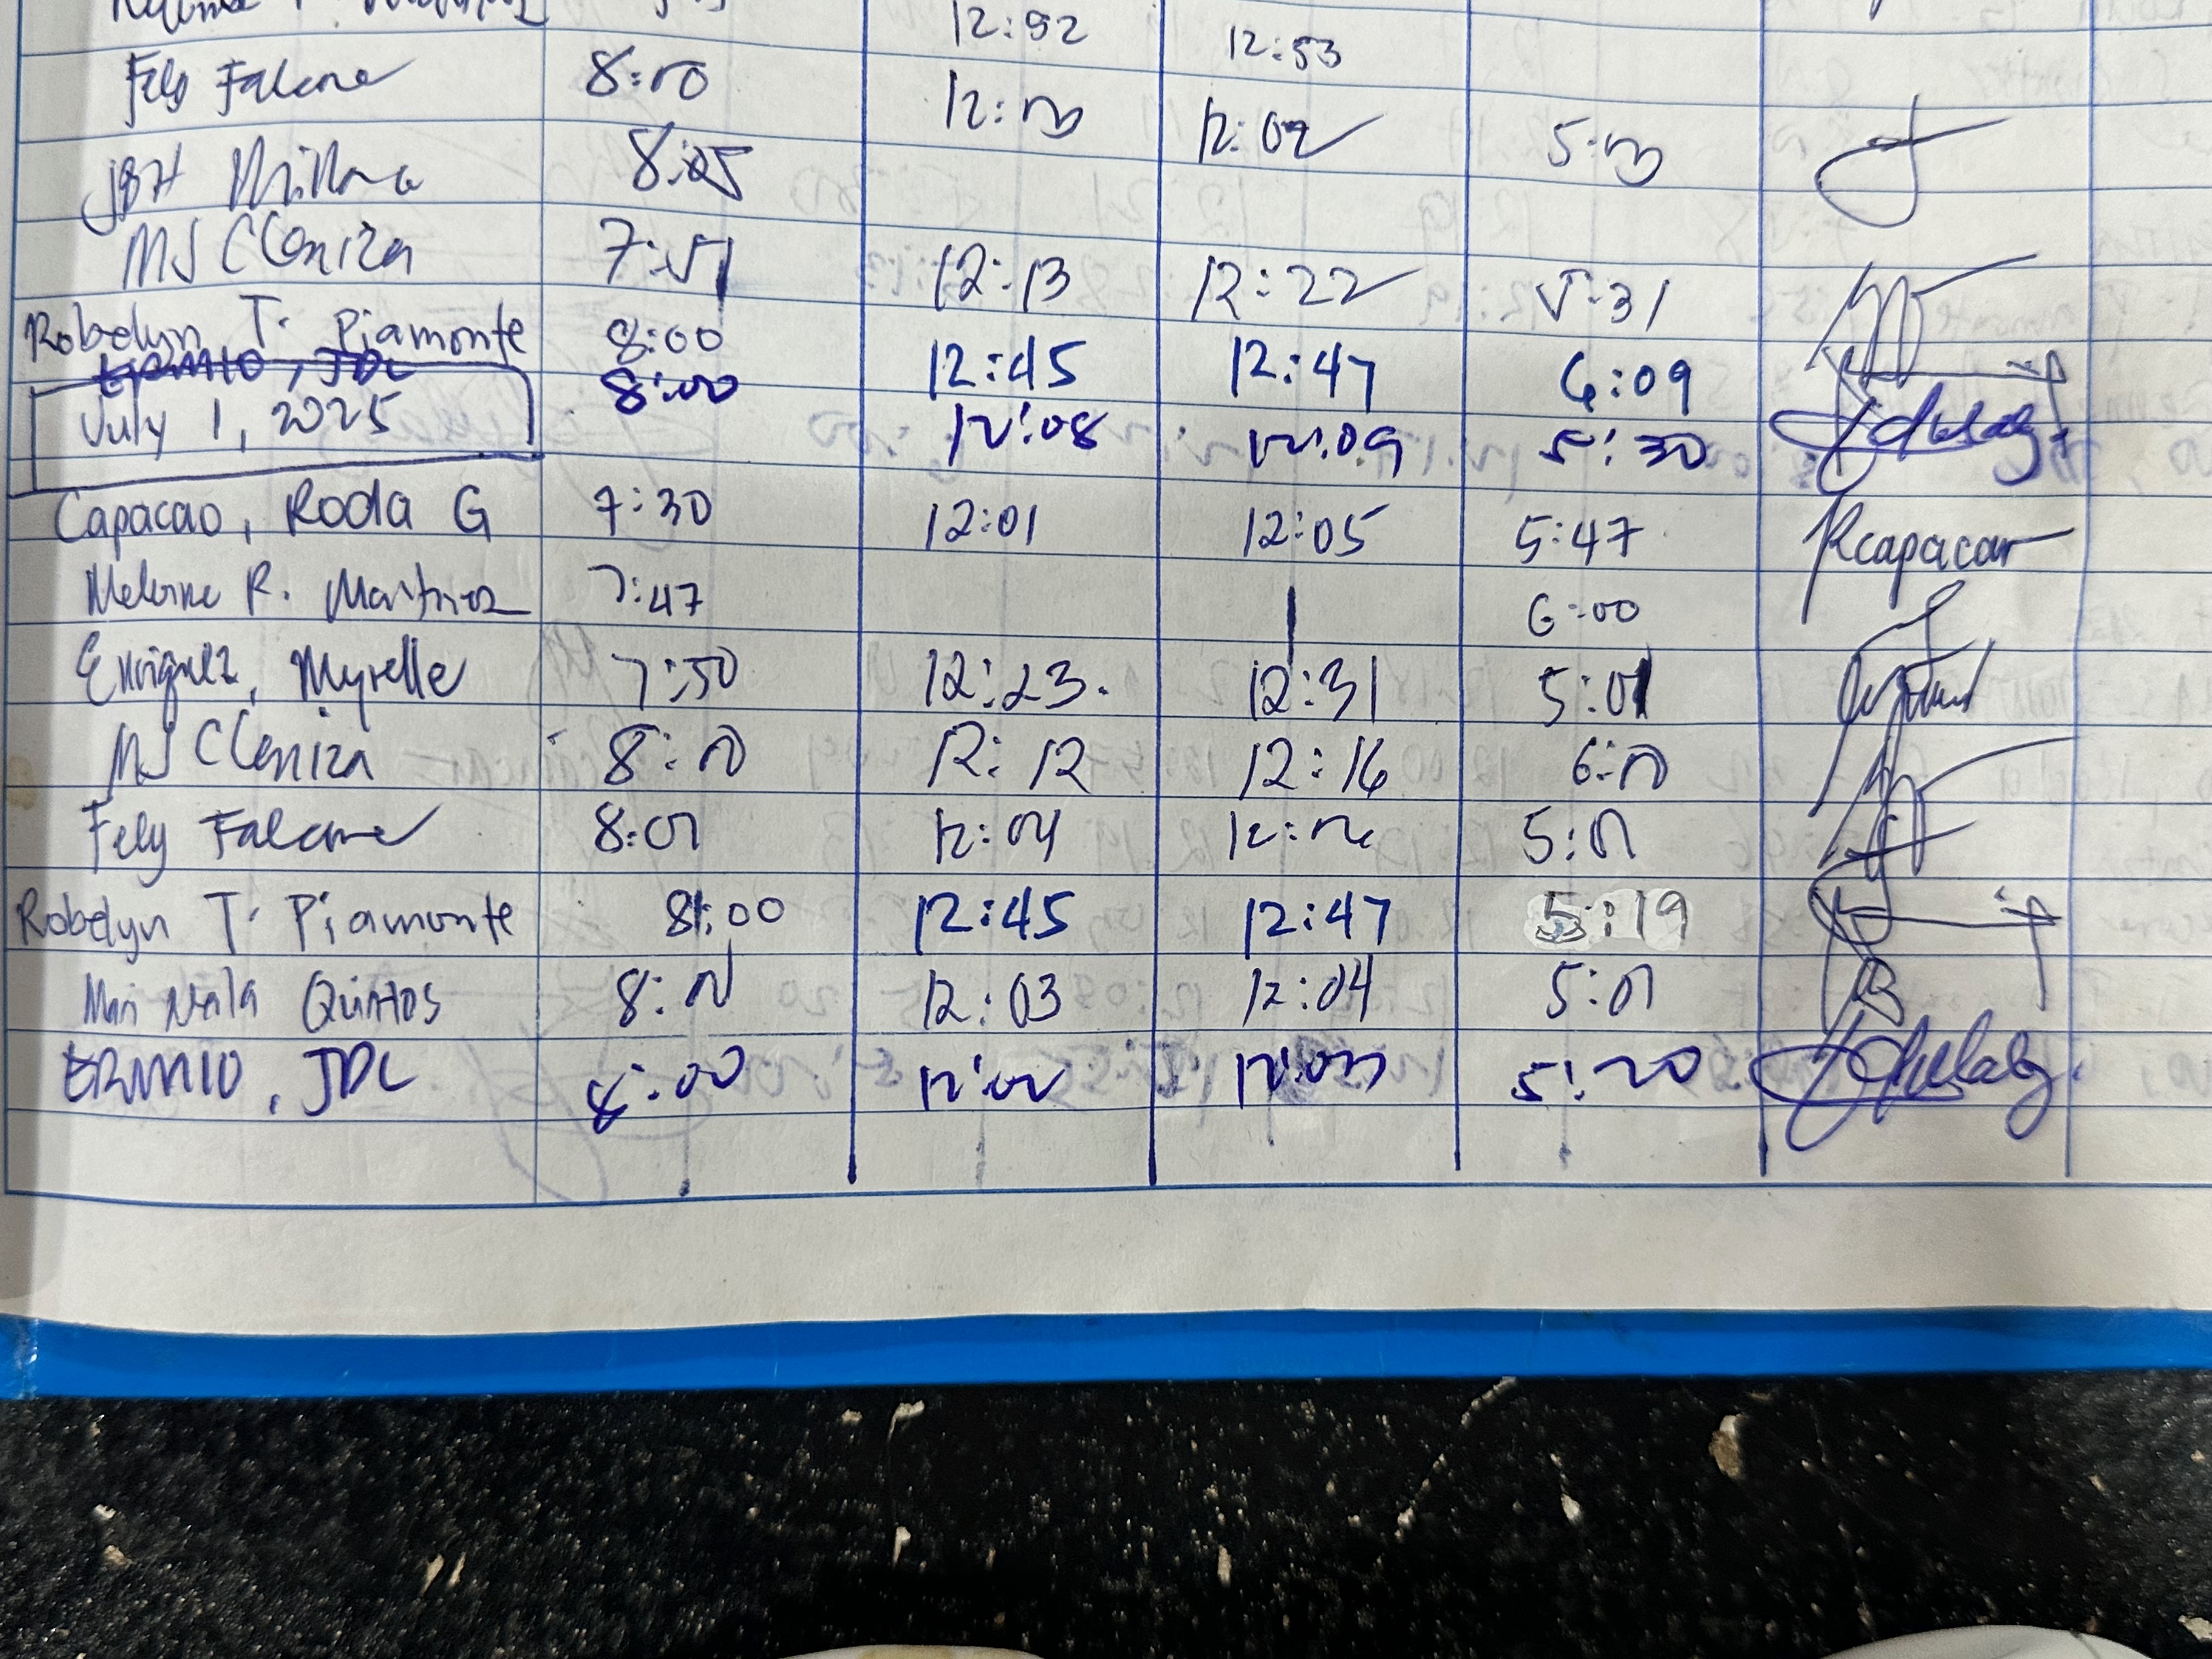 12:52 12:53
Fely Falcone 8:00 12:03 12:02 5:03
8:05
MJ CCeniza 7:51 12:13 12:22 5:31
Robelyn T. Piamonte 8:00 12:45 12:47 6:09
ERMIO, JDL 8:00 12:08 12:09 5:30
July 1, 2025
Capacao, Roda G 7:30 12:01 12:05 5:47 Rcapacao
R. 7:47 6:00
Enriquez, Myrelle 7:50 12:23. 12:31 5:01
MJ CCeniza 8:00 12:12 12:16 6:00
Fely Falcone 8:01 12:04 5:01
Robelyn T. Piamonte 8:00 12:45 12:47 5:19
Quintos 12:03 12:04 5:01
ERMIO, JDL 8:00 12:02 12:03 5:20